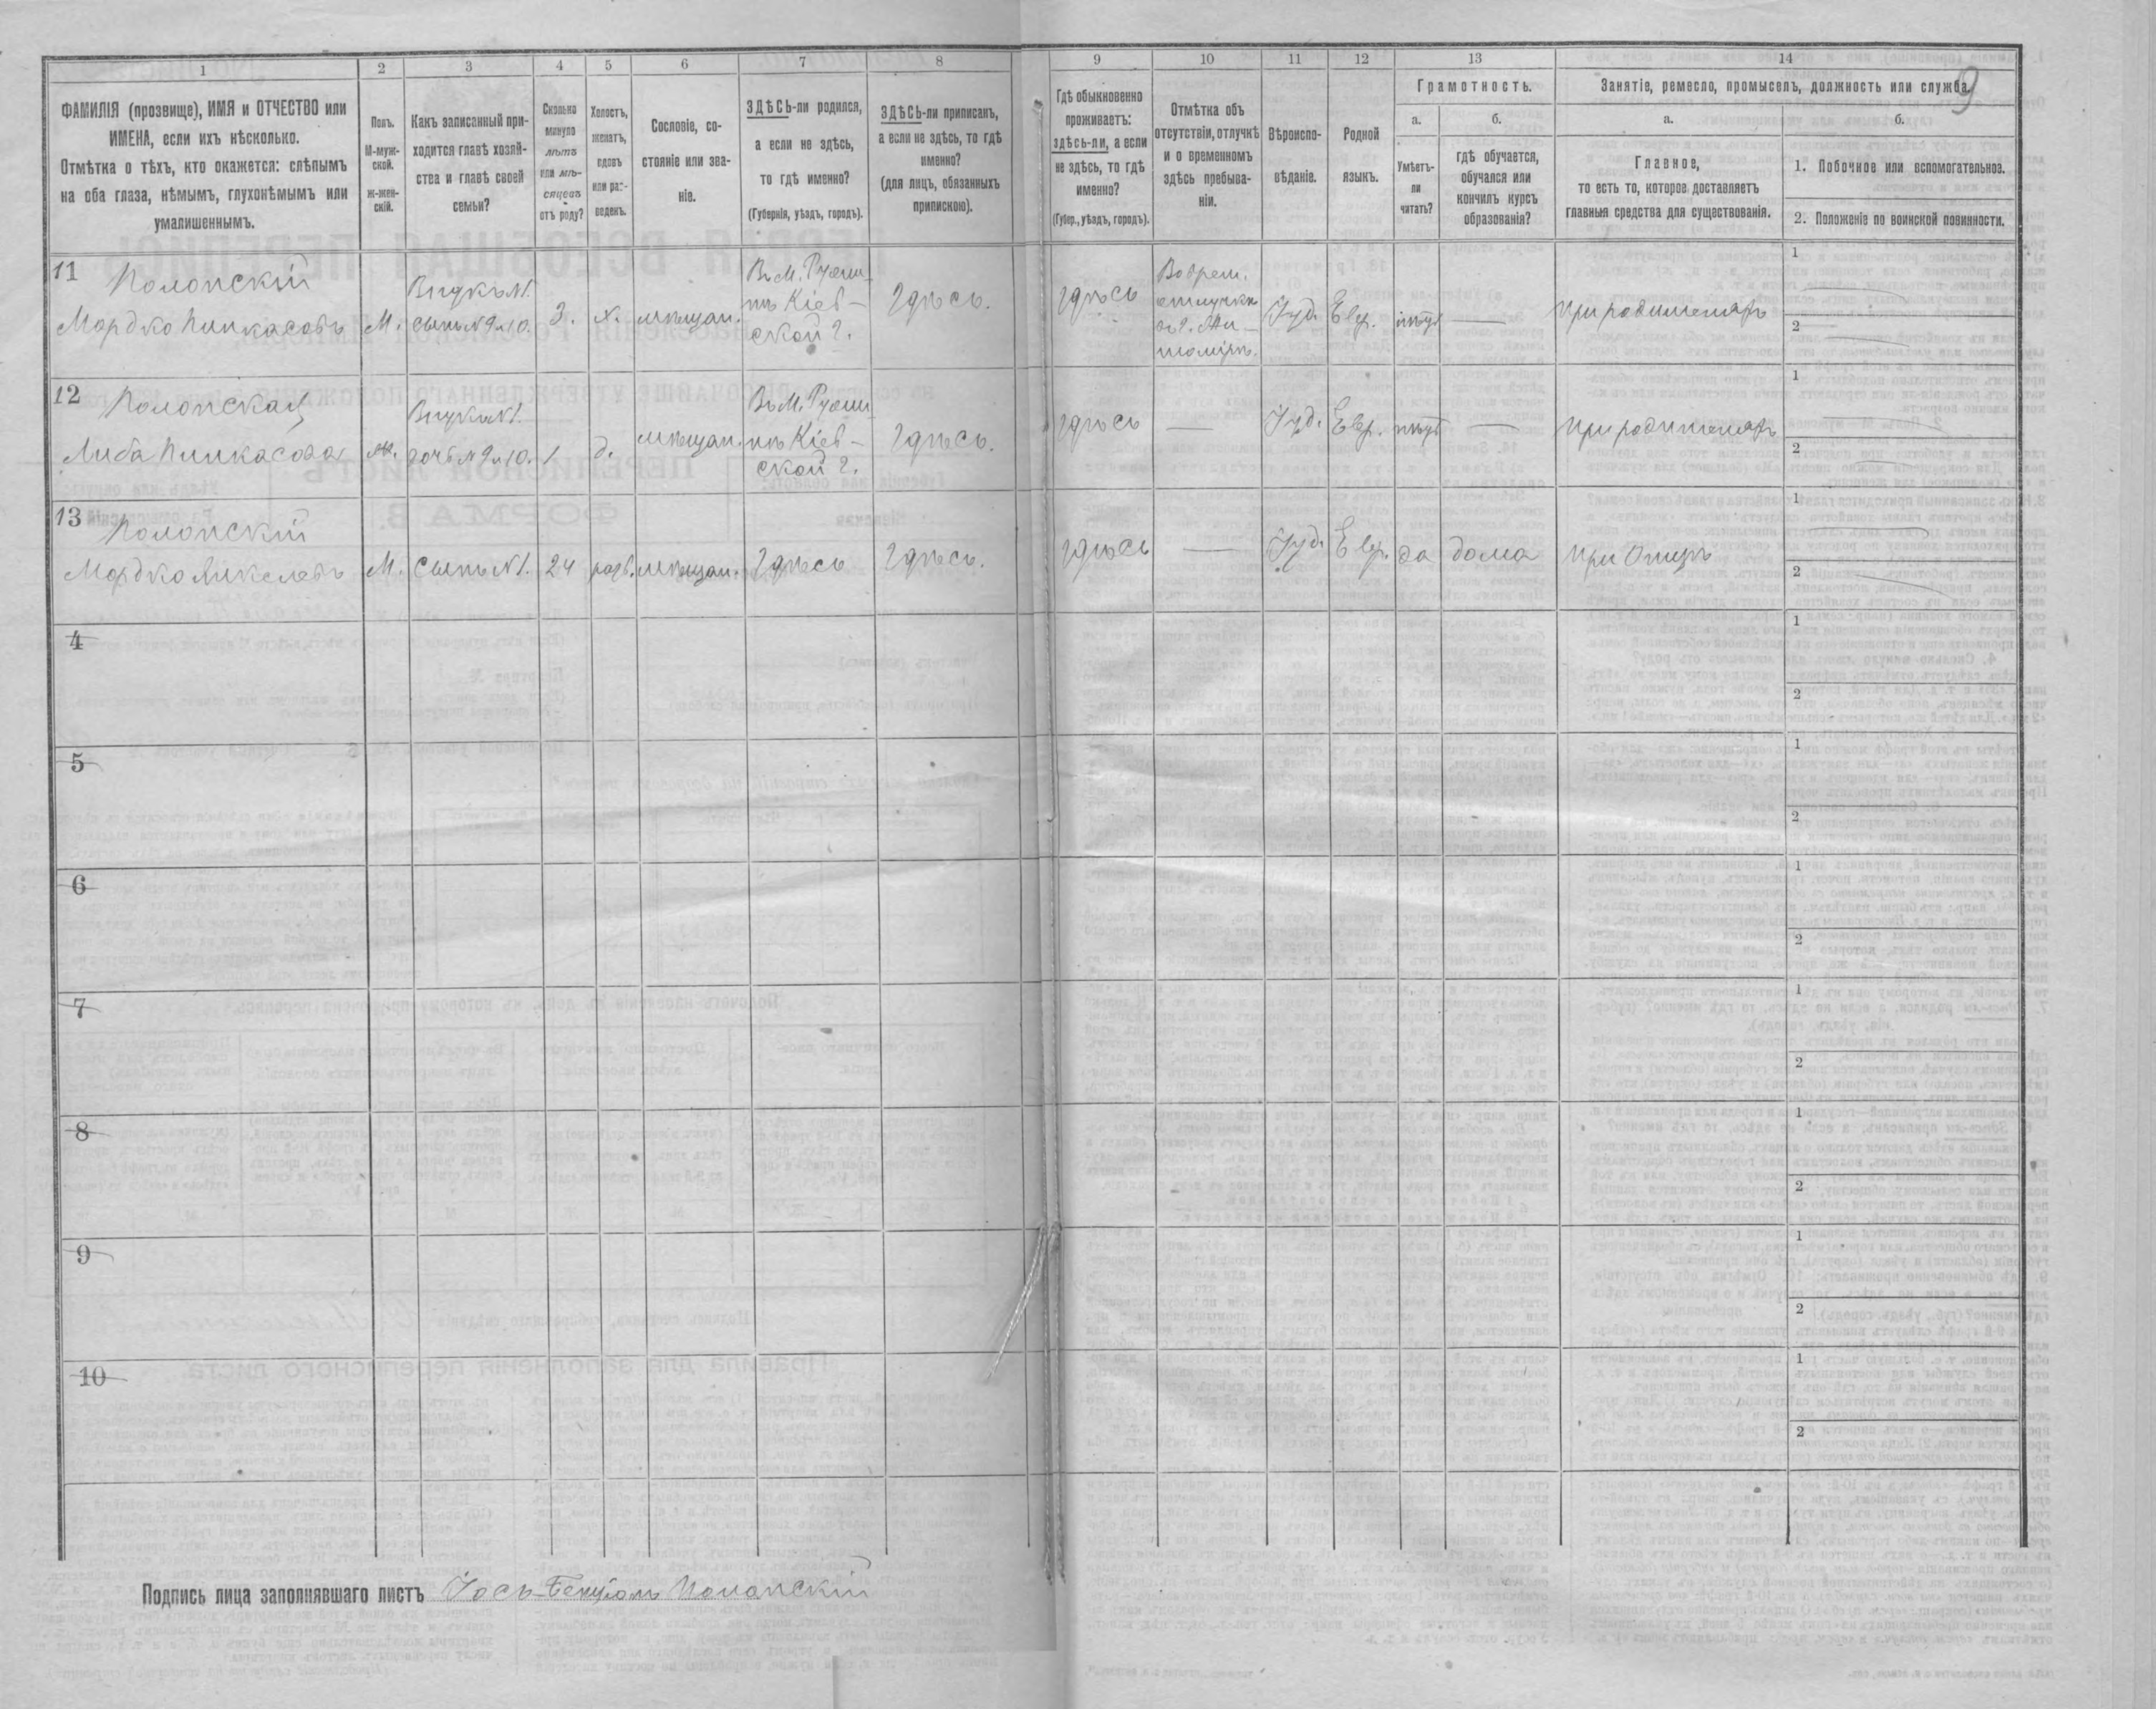 9
1
2
3
4
5
6
7
8
9
10
11
12
13
14
ФАМИЛІЯ (прозвище), ИМЯ и ОТЧЕСТВО или
ИМЕНА, если ихъ нѣсколько.
Отмѣтка о тѣхъ, кто окажется: слѣпымъ
на оба глаза, нѣмымъ, глухонѣмымъ или
умалишеннымъ.
Полъ.
М-муж-
ской.
Ж-жен-
скій.
Какъ записанный при-
ходится главѣ хозяй-
ства и главѣ своей
семьи?
Сколько
минуло
лѣтъ
или мѣ-
сяцевъ
отъ роду?
Холостъ,
женатъ,
вдовъ
или раз-
веденъ.
Сословіе, со-
стояніе или зва-
ніе.
ЗДѢСЬ-ли родился,
а если не здѣсь,
то гдѣ именно?
(Губернія, уѣздъ, городъ).
ЗДѢСЬ-ли приписанъ,
а если не здѣсь, то гдѣ
именно?
(для лицъ, обязанныхъ
припискою).
Гдѣ обыкновенно
проживаетъ:
здѣсь-ли, а если
не здѣсь, то гдѣ
именно?
(Губер., уѣздъ, городъ).
Отмѣтка объ
отсутствіи, отлучкѣ
и о временномъ
здѣсь пребыва-
ніи.
Вѣроиспо-
вѣданіе.
Родной
языкъ.
Грамотность.
а.
Умѣетъ-
ли
читать?
б.
гдѣ обучается,
обучался или
кончилъ курсъ
образованія?
Занятіе, ремесло, промыселъ, должность или служба.
а.
Главное,
то есть то, которое доставляетъ
главныя средства для существованія.
б.
1. Побочное или вспомогательное.
2. Положеніе по воинской повинности.
11
Полонскій
Мордко Пинкасовъ
М.
Внукъ №1.
сынъ №9 и 10.
3.
х.
мѣщан.
Въ М. Ружи-
нѣ Кіев-
ской г.
Здѣсь.
здѣсь
Во врем.
отлучкѣ
въ г. Жи-
томірѣ.
Іуд.
Евр.
нѣтъ
—
при родителяхъ
1
2
12
Полонская
Либа Пинкасова
ж.
Внучка №1.
дочь №9 и 10.
1
д.
мѣщан.
Въ М. Ружи-
нѣ Кіев-
ской г.
Здѣсь.
здѣсь
—
Іуд.
Евр.
нѣтъ
—
при родителяхъ
1
2
13
Полонскій
Мордко Янкелевъ
М.
Сынъ №1.
24
разв.
мѣщан.
Здѣсь
Здѣсь.
здѣсь
—
Іуд.
Евр.
да
дома
при Отцѣ
1
2
4
1
2
5
1
2
6
1
2
7
1
2
8
1
2
9
1
2
10
1
2
Подпись лица заполнявшаго листъ Іось-Бенціонъ Полонскій